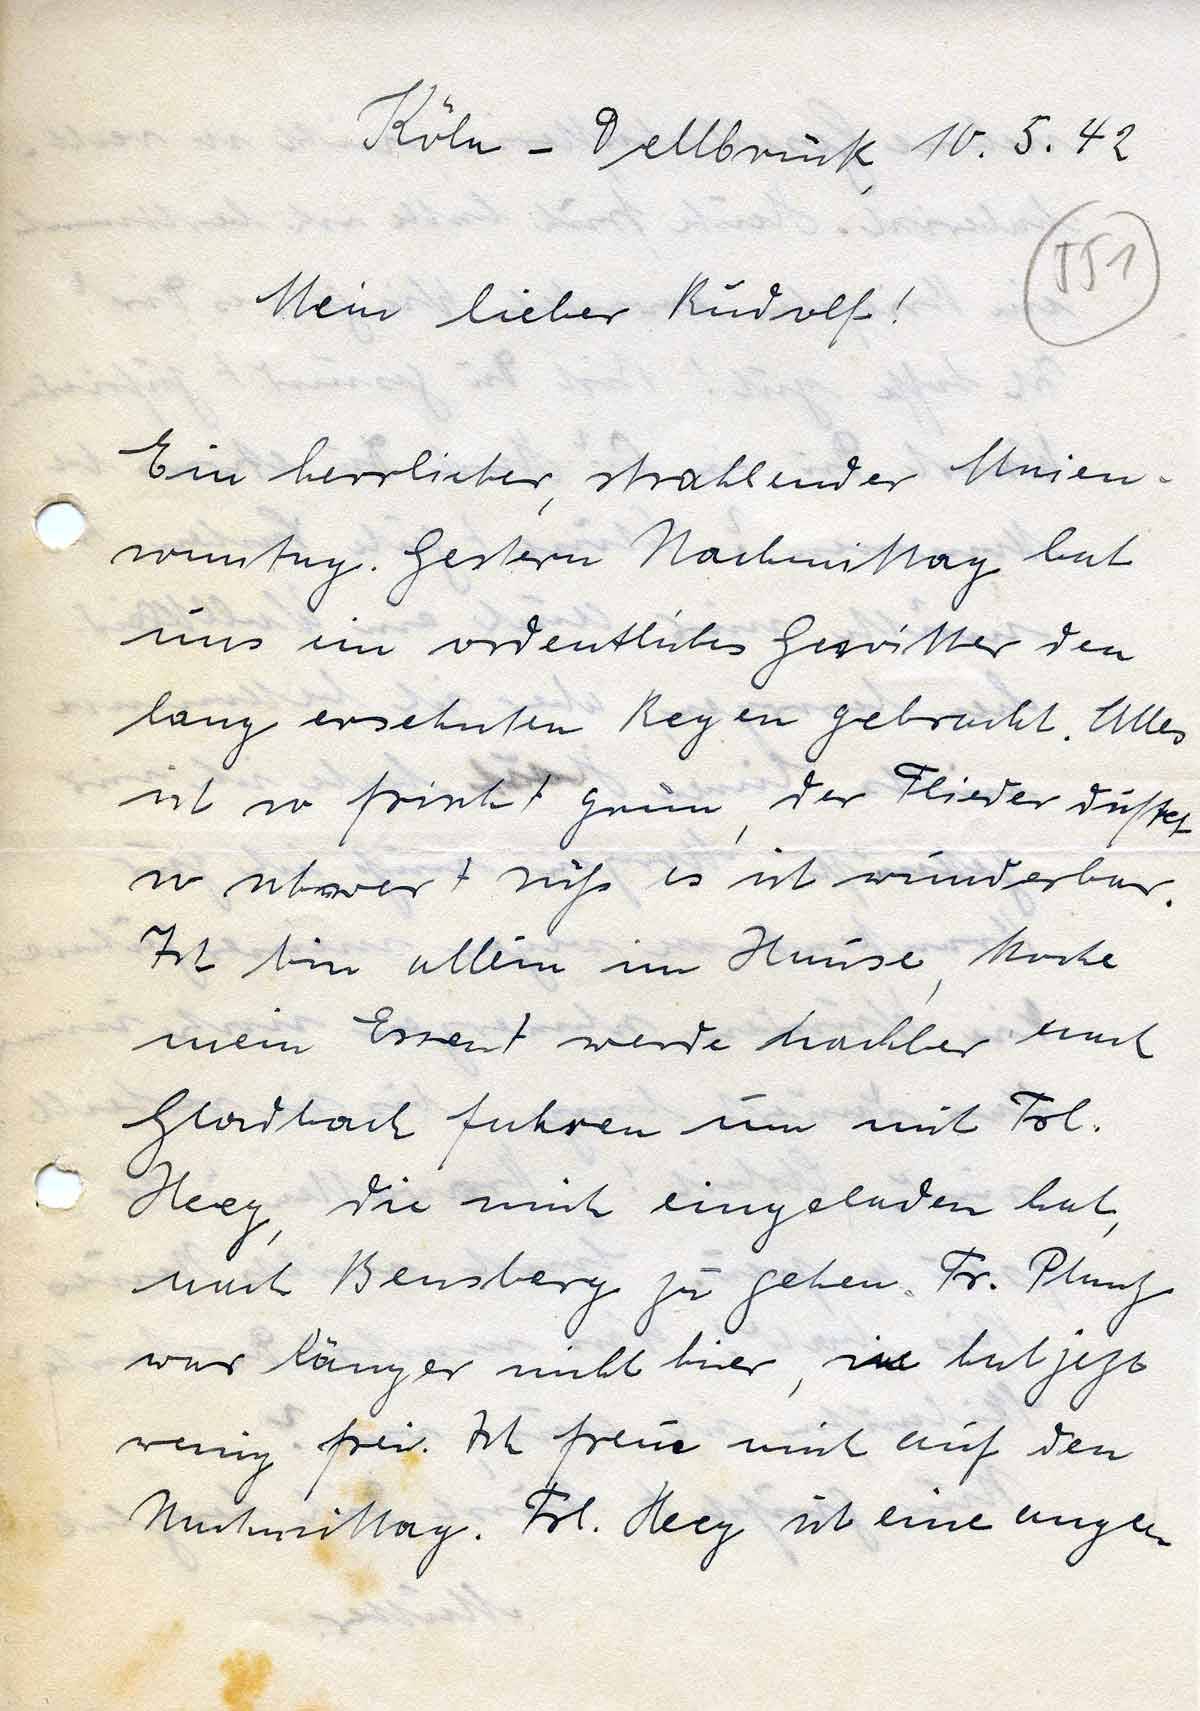 Köln - Dellbrück, 10. 5. 42
551
Mein lieber Rudolf!
Ein herrlicher, strahlender Maien-
sonntag. Gestern Nachmittag hat
uns ein ordentliches Gewitter den
lang ersehnten Regen gebracht. Alles
ist so frisch + grün, der Flieder duftet
so schwer + süß es ist wunderbar.
Ich bin allein im Hause, koche
mein Essen + werde nachher nach
Gladbach fahren um mit Frl.
Heeg, die mich eingeladen hat,
nach Bensberg zu gehen. Fr.
war länger nicht hier, sie hat jezt
wenig frei. Ich freue mich auf den
Nachmittag. Frl. Heeg ist eine ange-